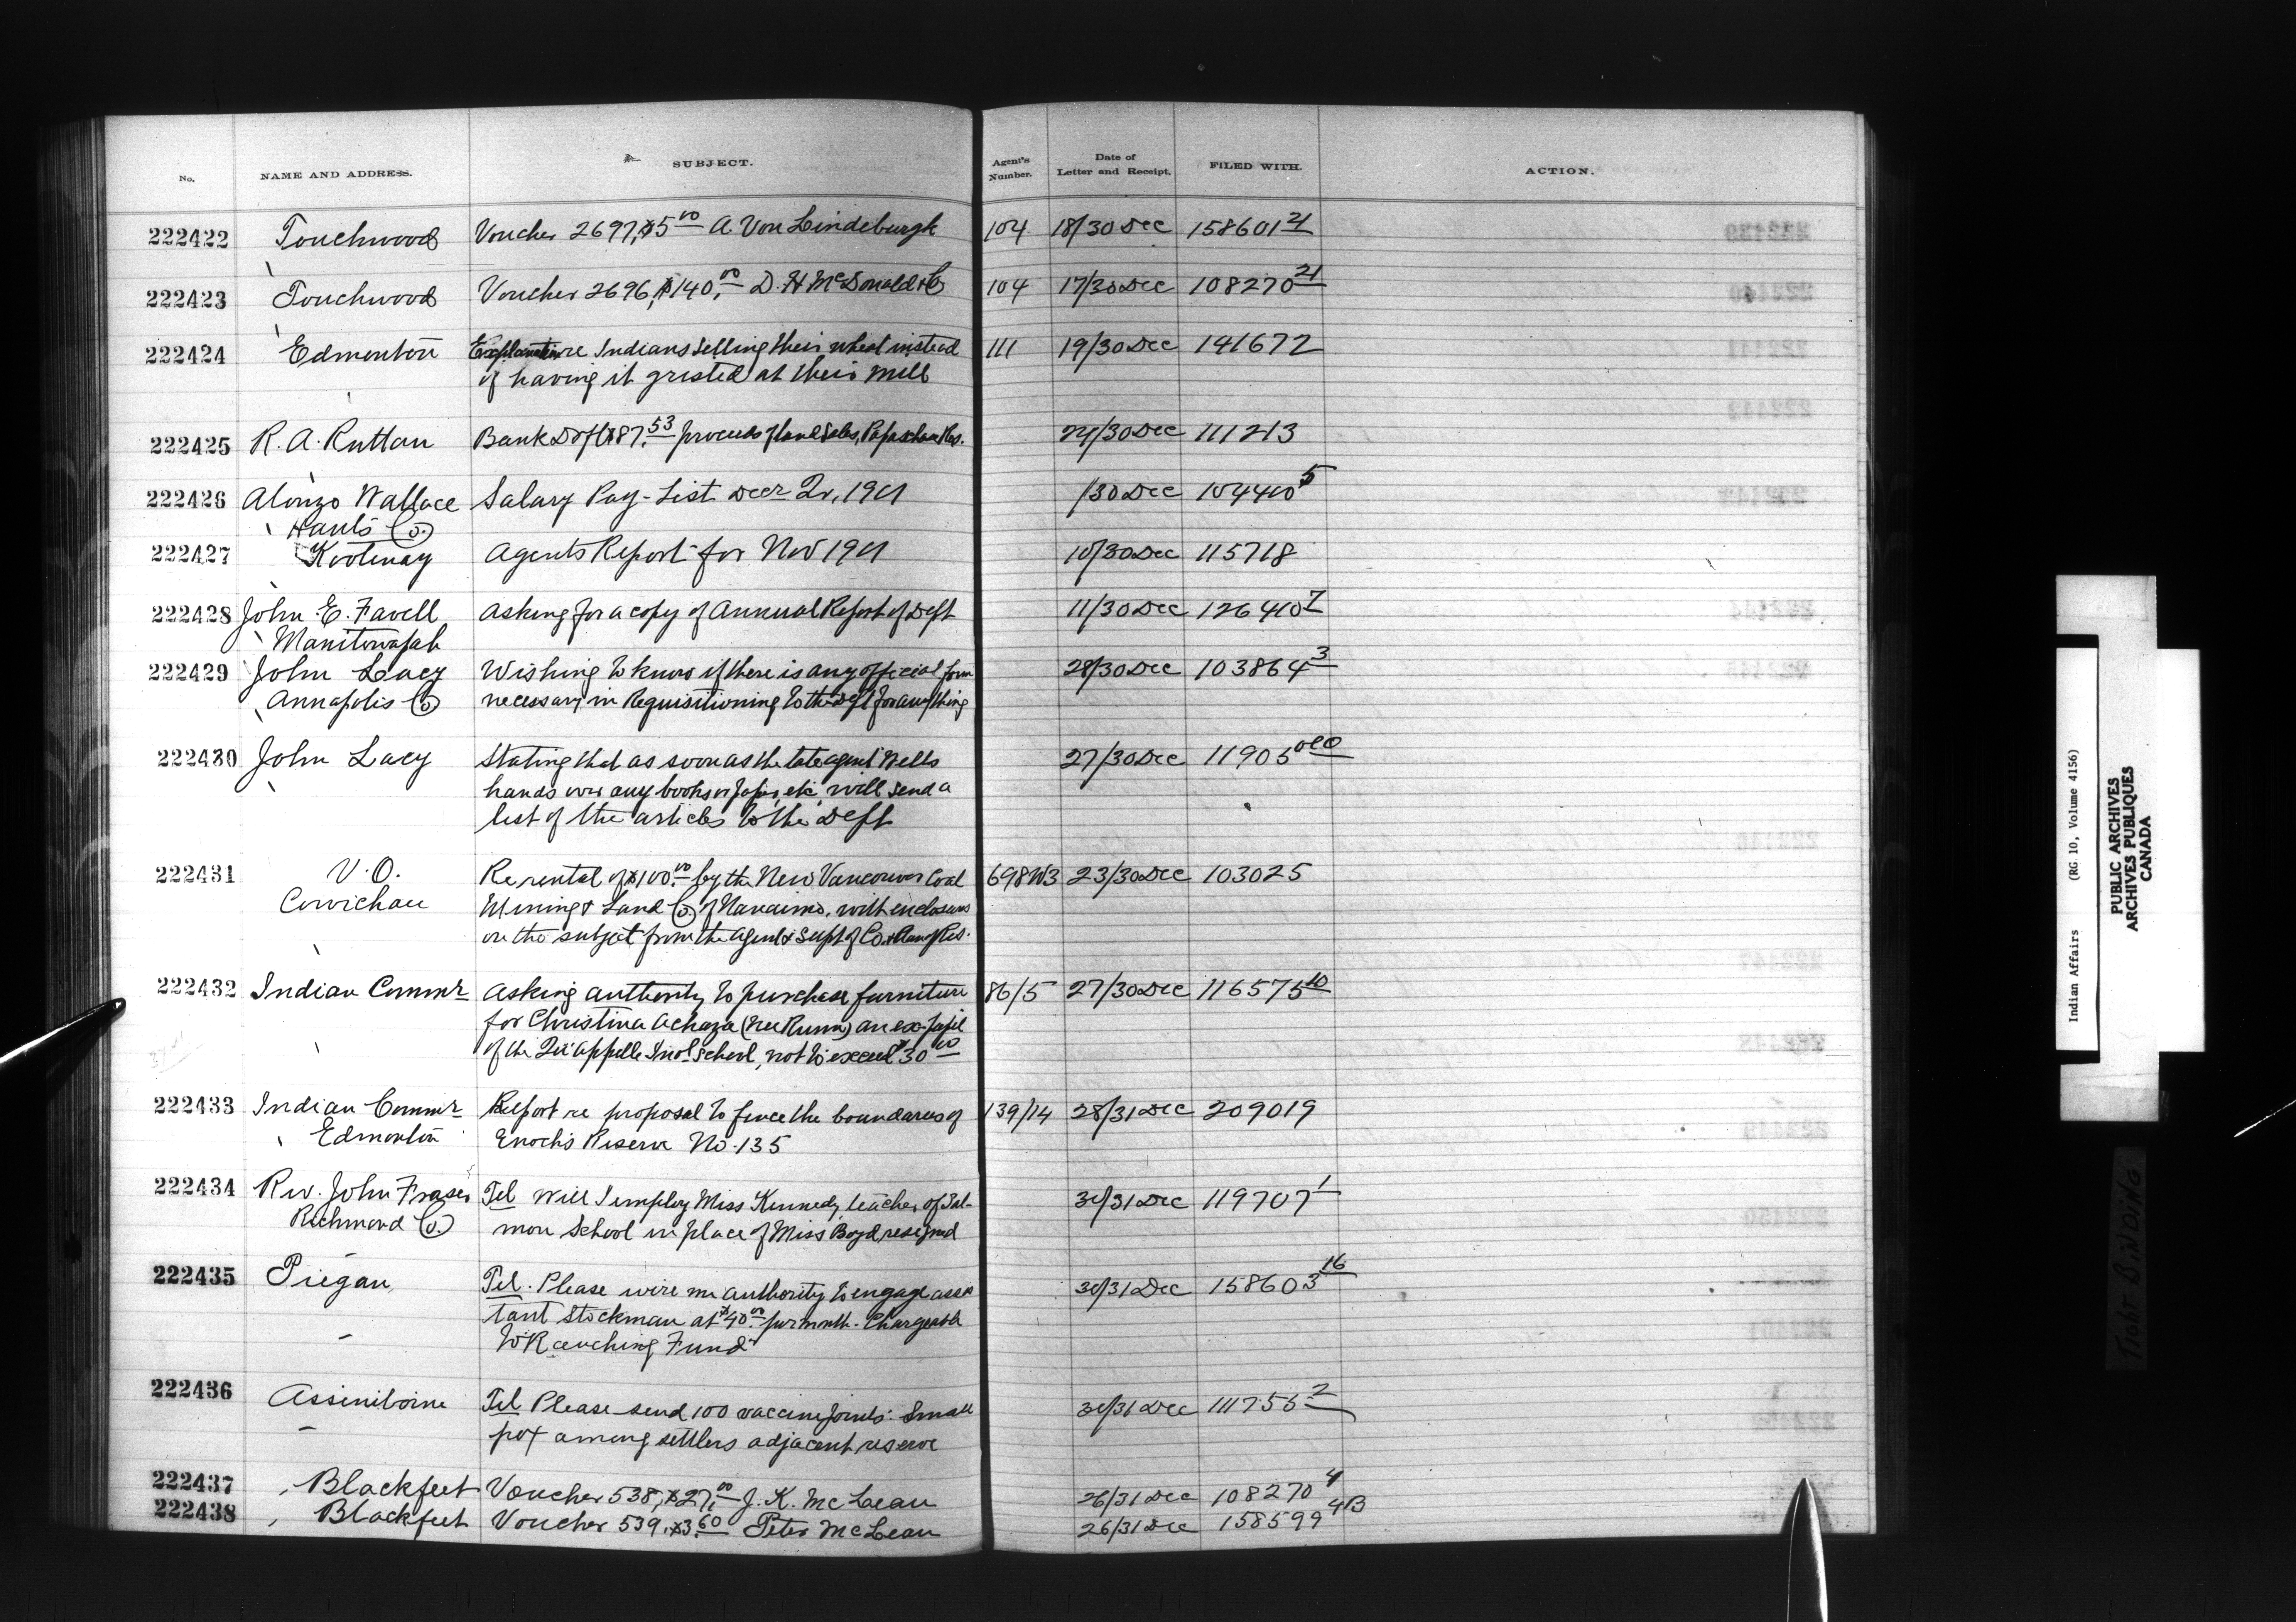 No. NAME AND ADDRESS. SUBJECT. Agent's Number. Date of Letter and Receipt. FILED WITH. ACTION.
222422 Touchwood Voucher 2697, $5 00 A Von Lindeburgh 104 18/30 Dec 158601 21
222423 Touchwood Voucher 2696, $140, 00 D. H McDonald & Co 104 17/30 Dec 108270 21
222424 Edmonton Explanation re Indians selling their wheat instead 111 19/30 Dec 141672
of having it gristed at their mill
222425 R. A. Ruttan Bank Dft $87. 53 proceeds of land Sales, Papaschase Res. 24/30 Dec 111213
222426 Alonzo Wallace Salary Pay-List Decr Qr, 1901 /30 Dec 104410 5
Hants Co.
222427 Kootenay Agents Report for Nov 1901 10/30 Dec 115718
222428 John E. Favell Asking for a copy of Annual Report of Dept 11/30 Dec 126410 7
Manitowapah
222429 John Lacy Wishing to know if there is any official form 28/30 Dec 103864 3
Annapolis Co necessary in Requisitioning to the Dept for anything
222430 John Lacy Stating that as soon as the late agent Wells 27/30 Dec 11905
hands over any books or papers, etc, will send a
list of the articles to the Dept
222431 V. O. Re rental of $100. 00 by the New Vancouver Coal 698 W3 23/30 Dec 103025
Cowichan Mining & Land Co of Nanaimo, with enclosures
on the subject from the Agent & Supt of Co.
222432 Indian Commr Asking authority to purchase furniture 86/5 27/30 Dec 116575 10
for Christina Achaza (nee Runn) an ex-pupil
of the Qu'Appelle Indl School, not to exceed $30 00
222433 Indian Commr Report re proposal to fence the boundaries of 139/14 28/31 Dec 209019
Edmonton Enoch's Reserve No. 135
222434 Rev. John Fraser Tel Will I employ Miss Kennedy, teacher of Sal- 30/31 Dec 119707 1
Richmond Co. mon School in place of Miss Boyd, resigned
222435 Piegan, Tel. Please wire me authority to engage assis 30/31 Dec 158603 16
tant Stockman at $40. 00 per month. Chargeable
to "Ranching Fund"
222436 Assiniboine Tel Please send 100 vaccine points. Small 30/31 Dec 111755 2
pox among settlers adjacent reserve
222437 Blackfeet Voucher 538, $27, 00 J. K. McLean 26/31 Dec 108270 4
222438 Blackfeet Voucher 539, $3. 60 Peter McLean 26/31 Dec 158599 4B
Indian Affairs (RG 10, Volume 4156)
PUBLIC ARCHIVES
ARCHIVES PUBLIQUES
CANADA
TIGHT BINDING